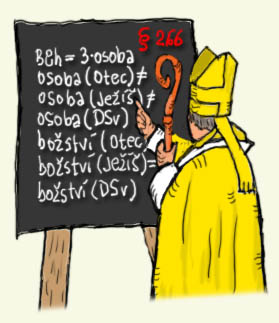 § 266
Bůh = 3·osoba
osoba (Otec) ≠
osoba (Ježíš) ≠
osoba (DSv)
božství (Otec
božství (Ježíš) =
božství (DSv)